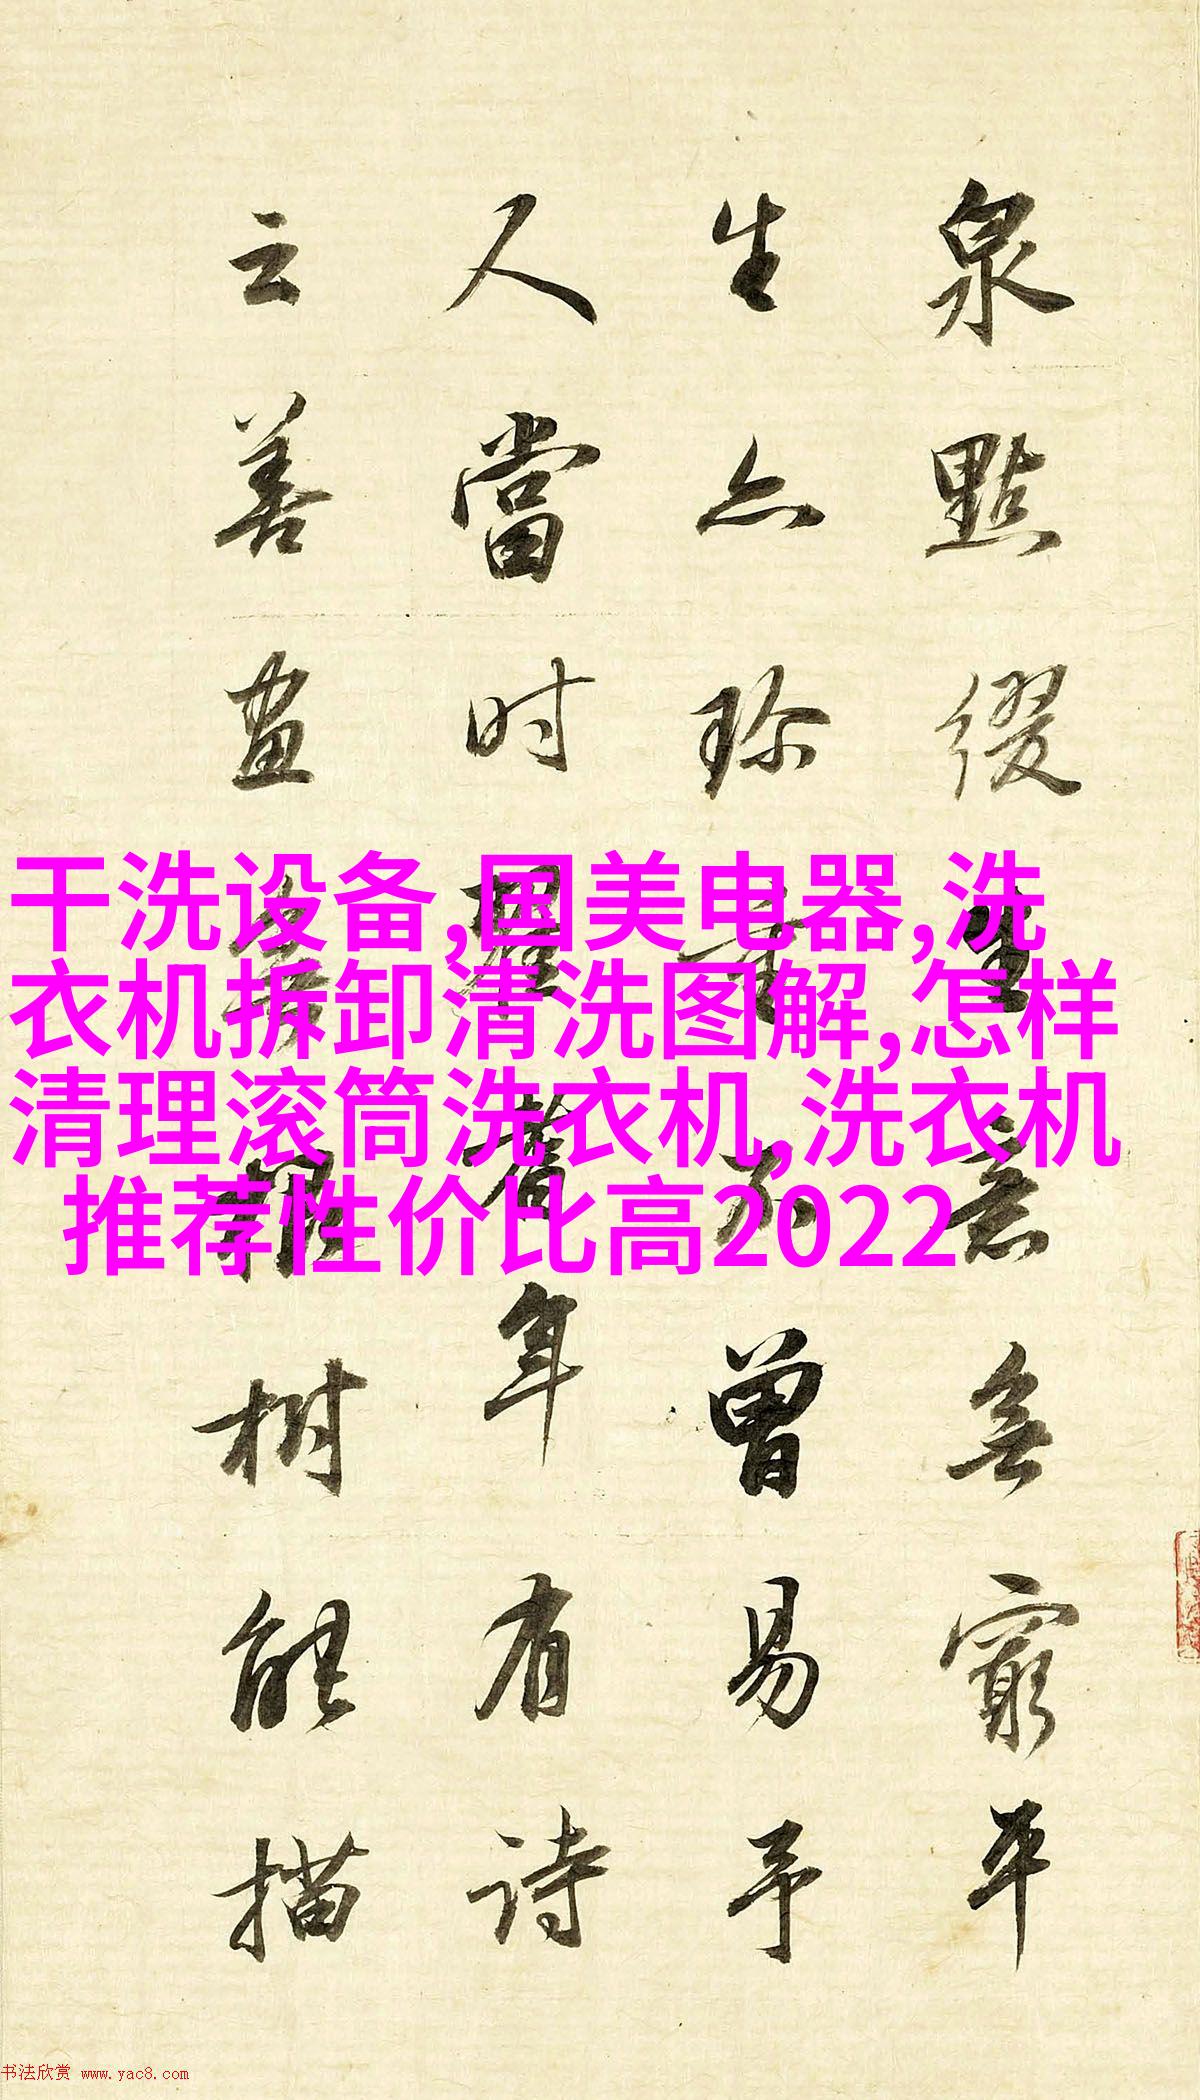 泉點缀生意無窮平
生亦珍重不曾易予
人當时題舊年有诗
云善畫
树能描
干洗设备,国美电器,洗
衣机拆卸清洗图解,怎样
清理滚筒洗衣机,洗衣机
推荐性价比高2022
书法欣赏 www.yac8.com